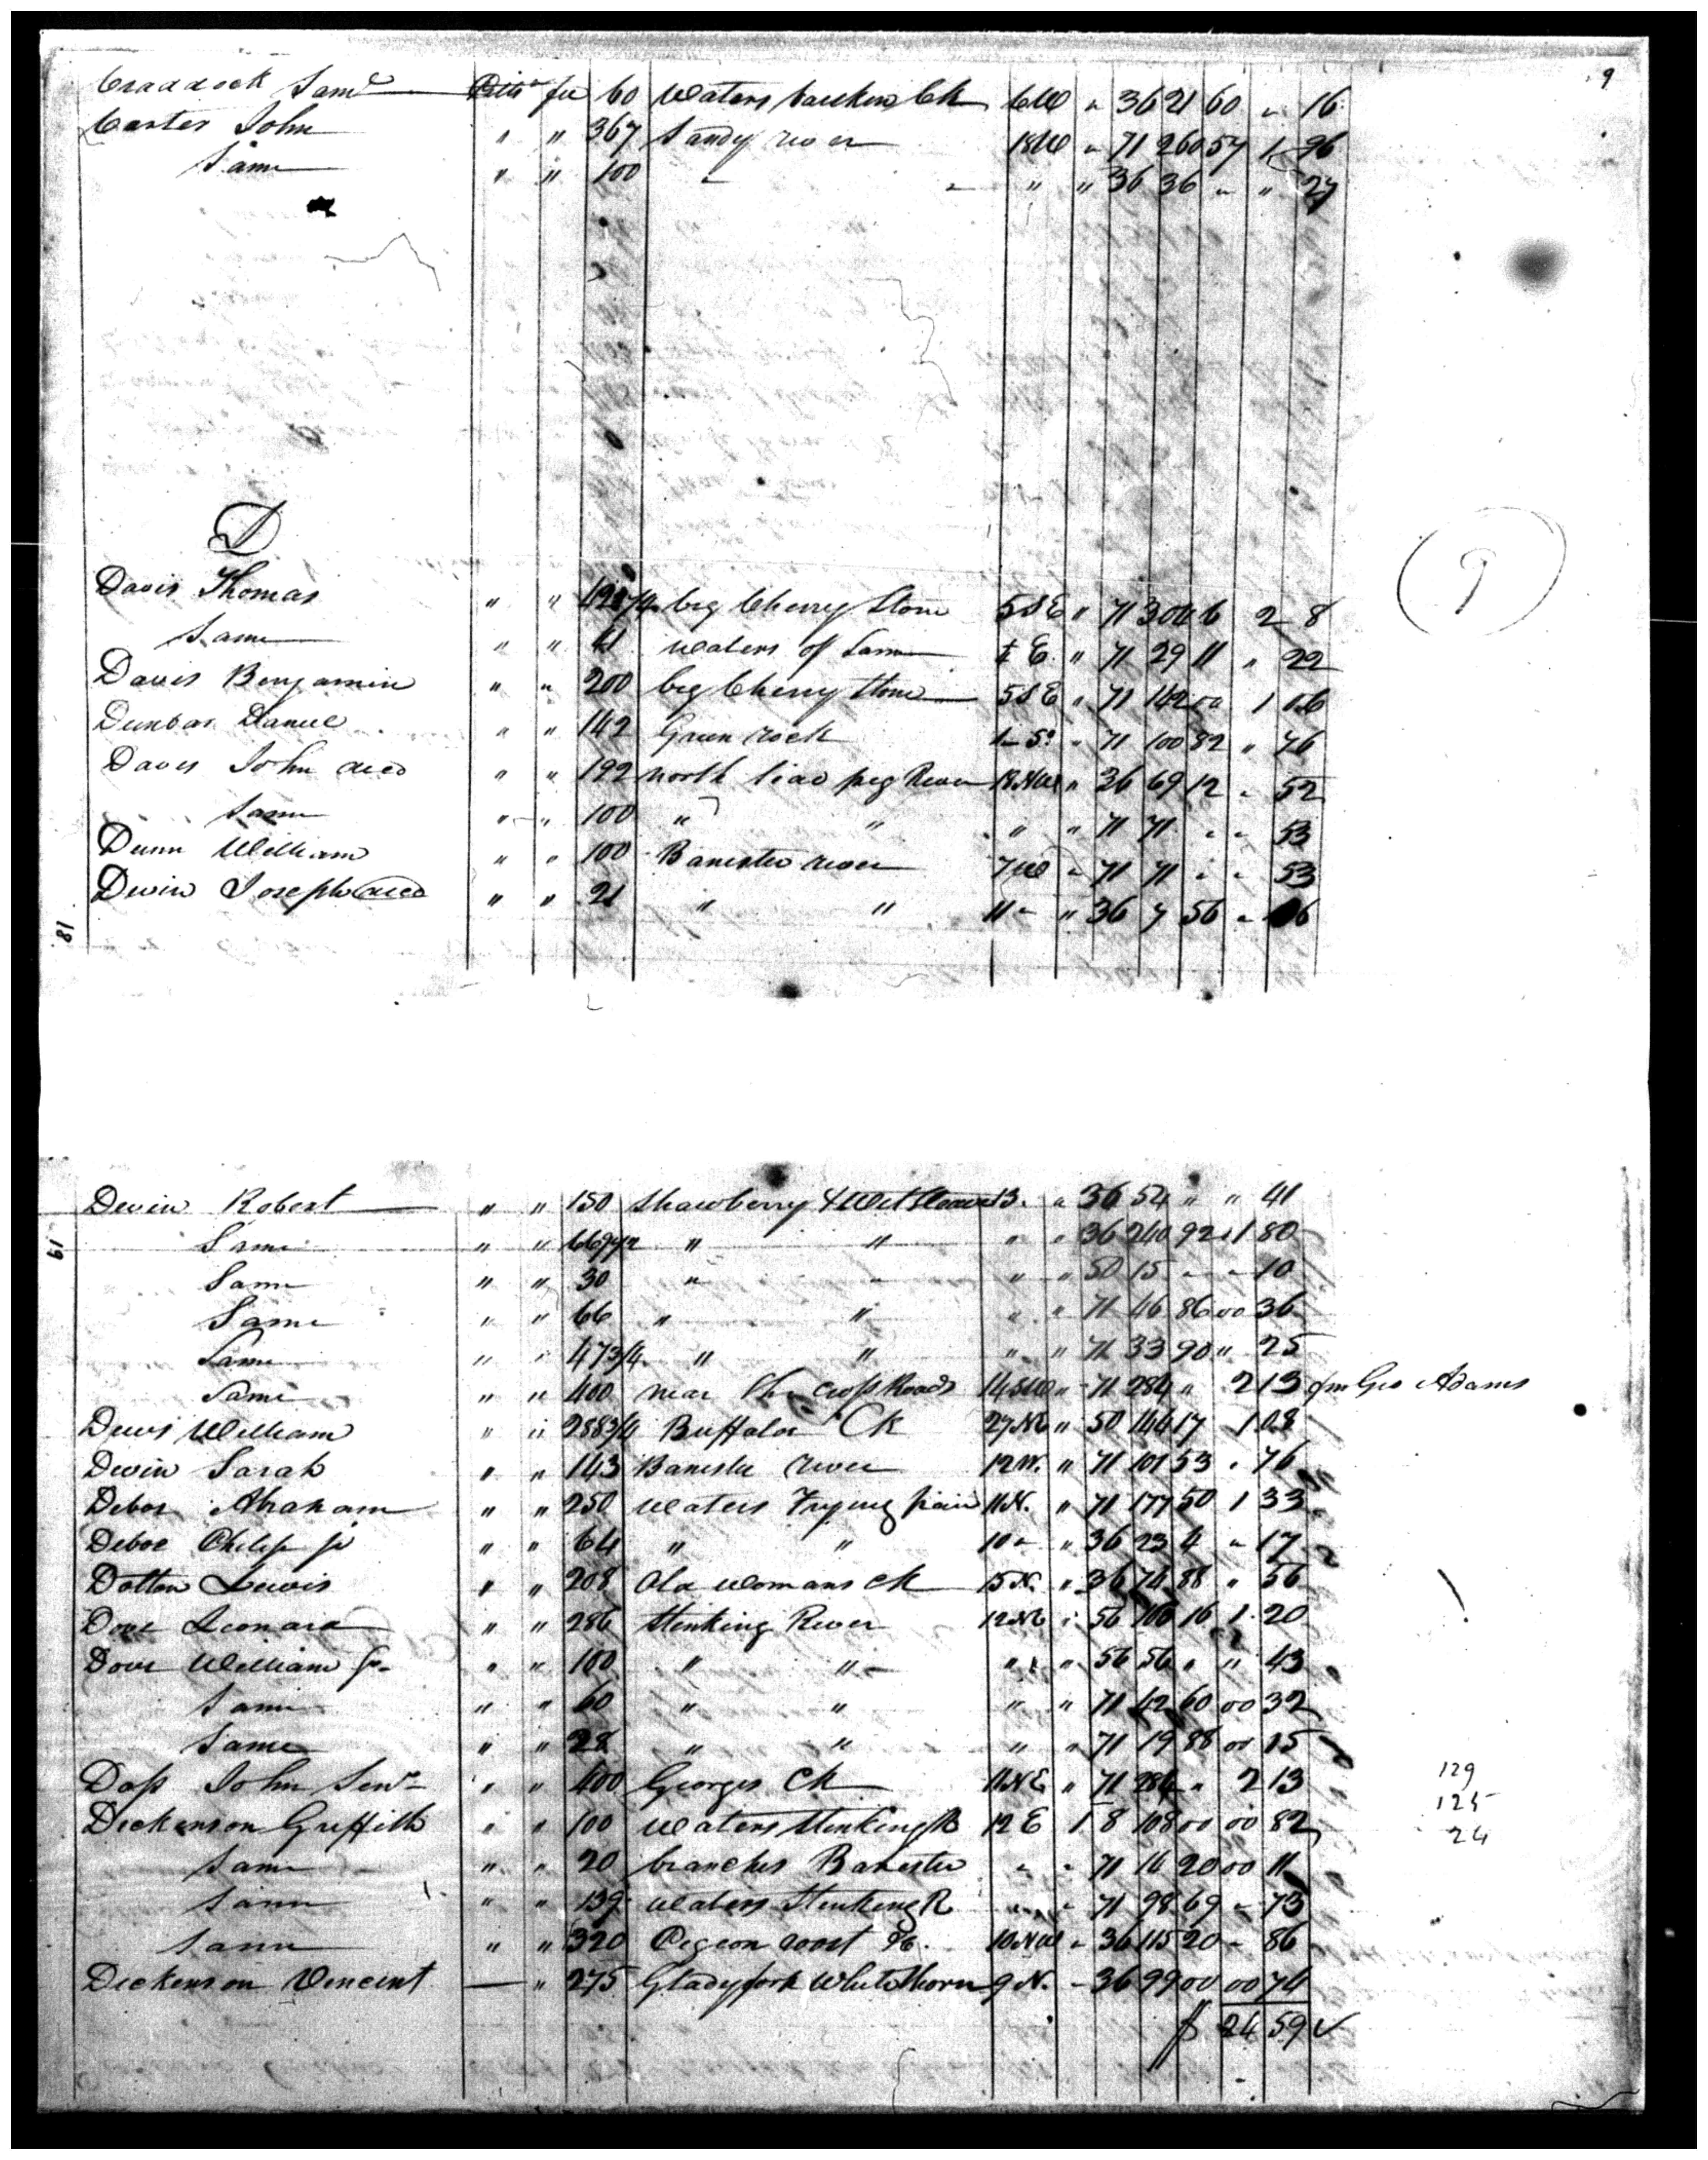 9
Craddock Saml Pitts fee 60 Waters 6W " 36 21 60 " 16
Carter John " " 367 Sandy river 18W " 71 260 57 1 96
Same " " 100 " " " " 36 36 " " 27
D
9
Davis Thomas " " big Cherry Stone 5SE " 71 2 8
Same " " 41 Waters of Same E " 71 29 11 " 22
Davis Benjamin " " 200 big Cherry Stone 5SE " 71 142 00 1 06
Dunbar Daniel " " 142 Green rock " 71 100 82 " 76
Davis John decd " " 192 north Side pig River 18NW " 36 69 12 " 52
Same " " 100 " " " " 71 71 " " 53
Dunn William " " 100 Banister river 7W " 71 71 " " 53
Devin Joseph decd " " 21 " " 11 " " 36 7 56 " 06
18
19
Devin Robert " " 150 Strawberry & 13. " 36 54 " " 41
Same " " " " " " 36 240 92 1 80
Same " " 30 " " " " 50 15 " " 10
Same " " 66 " " " " 71 46 86 00 36
Same " " 47 3/4 " " " " 71 33 90 " 25
Same " " 400 near the Cross Roads 14SW " 71 284 " 2 13 fm Geo Adams
Davis William " " 288 3/4 Buffaloe Ck 27NE " 50 144 17 1 08
Devin Sarah " " 143 Banister river 12W. " 71 101 53 " 76
Deboe Abraham " " 250 Waters Frying pan 11N. " 71 177 50 1 33
Deboe Philip jr " " 64 " " 10 " " 36 23 4 " 17
Dotton Lewis " " 208 Old Womans Ck 15N. " 36 74 88 " 56
Dove Leonard " " 286 Stinking River 12NE " 56 160 16 1 20
Dove William Jr " " 100 " " " " 56 56 " " 43
Same " " 60 " " " " 71 42 60 00 32
Same " " 28 " " " " 71 19 88 00 15
Doss John Senr " " 400 Georges Ck 11NE " 71 284 " 2 13
129
125
24
Dickenson Griffith " " 100 Waters Stinking R 12E 1 8 108 00 00 82
Same " " 20 branches Banister " " 71 14 20 00 11
Same " " 139 Waters Stinking R " " 71 98 69 " 73
Same " " 320 Pigeon roost 10NW " 36 115 20 " 86
Dickenson Vincent — " 275 Gladyfork Whitethorn 9N. " 36 99 00 00 74
$ 24 59 ✓